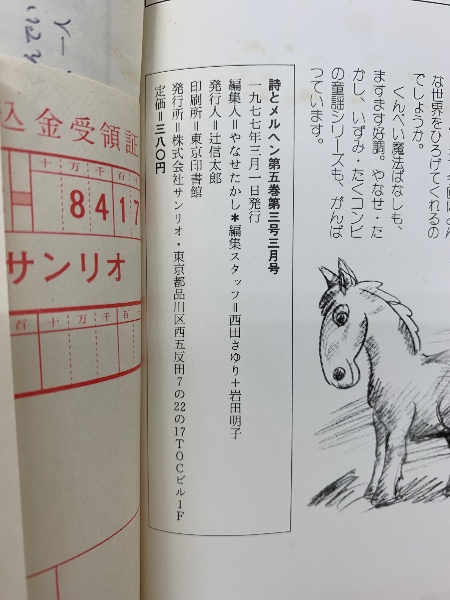 な世界をひろげてくれるの
でしょうか。
くんぺい魔法ばなしも、
ますます好調。やなせ・た
かし、いずみ・たくコンビ
の童謡シリーズも、がんば
っています。
詩とメルヘン第五巻第三号三月号
一九七七年三月一日発行
編集人＝やなせたかし＊編集スタッフ＝西田さゆり＋岩田明子
発行人＝辻信太郎
印刷所＝東京印書館
発行所＝株式会社サンリオ・東京都品川区西五反田7の22の17TOCビル1F
定価＝三八〇円
込金受領証
十万千百十
8417
サンリオ
百十万千百十
百十万千百十